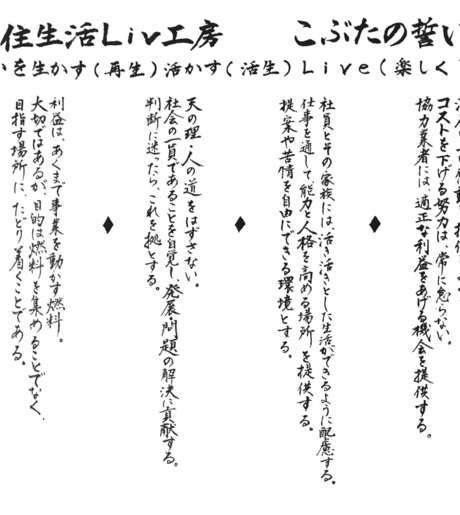 住生活Liv工房　こぶたの誓い
を生かす(再生)活かす(活生)Live(楽しく
コストを下げる努力は、常に怠らない。
協力業者には、適正な利益をあげる機会を提供する。
社員とその家族には、活き活きとした生活ができるように配慮する。
仕事を通して能力と人格を高める場所を提供する。
提案や苦情を自由にできる環境とする。
天の理・人の道をはずさない。
社会の一員であることを自覚し、発展・問題の解決に貢献する。
判断に迷ったら、これを拠とする。
利益は、あくまで事業を動かす燃料。
大切ではあるが、目的は燃料を集めることでなく、
目指す場所に、たどり着くことである。